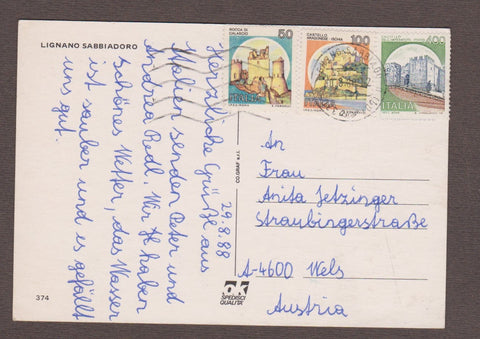 LIGNANO SABBIADORO
29.8.88
Herzliche Grüße aus
Italien senden Peter und
Andrea Redl. Wir haben
schönes Wetter, das Wasser
ist sauber und es gefällt
uns gut.
ROCCA DI
CALASCIO
50
CASTELLO
ARAGONESE - ISCHIA
100
400
ITALIA
An
Frau
Anita Jetzinger
Straubingerstraße
A-4600 Wels
Austria
CO.GRAF s.r.l.
ok
SPEDISCI
QUALITÀ
374